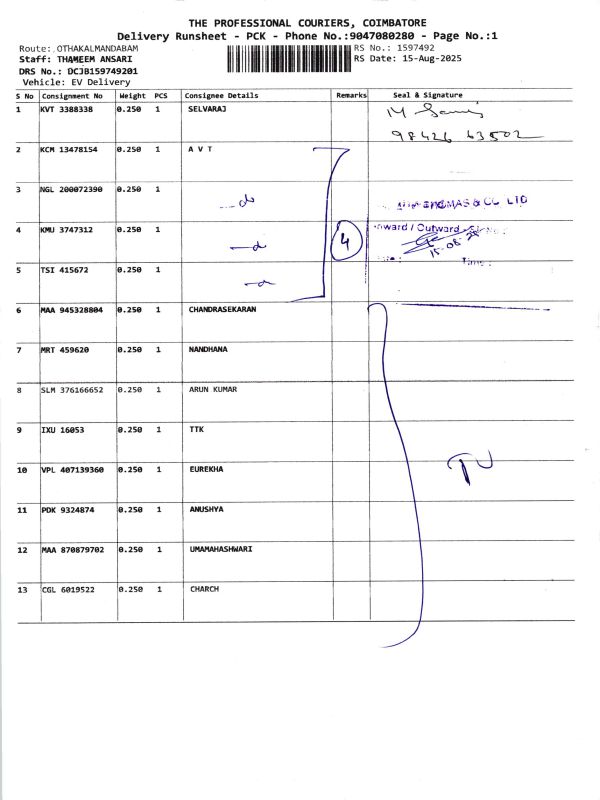 THE PROFESSIONAL COURIERS, COIMBATORE
Delivery Runsheet - PCK - Phone No.:9047080280 - Page No.:1
Route: OTHAKALMANDABAM RS No.: 1597492
Staff: THAMEEM ANSARI RS Date: 15-Aug-2025
DRS No.: DCJB159749201
Vehicle: EV Delivery
S No Consignment No Weight PCS Consignee Details Remarks Seal & Signature
1 KVT 3388338 0.250 1 SELVARAJ
98426 63502
2 KCM 13478154 0.250 1 A V T
3 NGL 200072390 0.250 1
THOMAS & CO LTD
4 KMU 3747312 0.250 1 4 Inward / Outward
15-08-25
5 TSI 415672 0.250 1 Time :
6 MAA 945328804 0.250 1 CHANDRASEKARAN
7 MRT 459620 0.250 1 NANDHANA
8 SLM 376166652 0.250 1 ARUN KUMAR
9 IXU 16053 0.250 1 TTK
10 VPL 407139360 0.250 1 EUREKHA
11 PDK 9324874 0.250 1 ANUSHYA
12 MAA 870879702 0.250 1 UMAMAHASHWARI
13 CGL 6019522 0.250 1 CHARCH